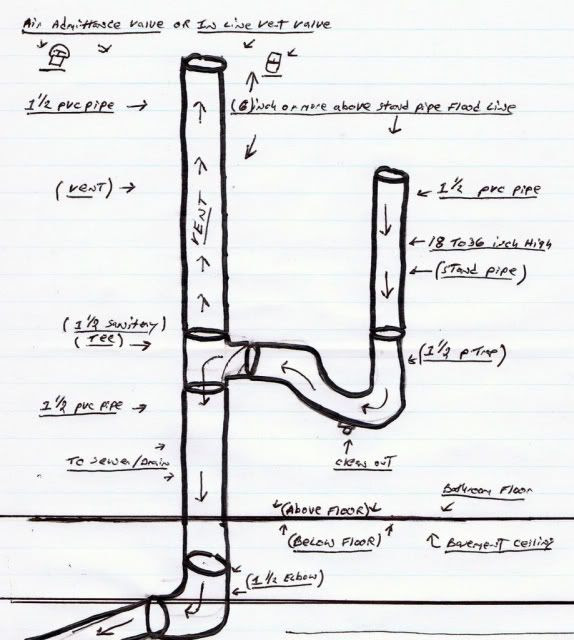 Air Admittance valve OR In Line vent valve
1 1/2 pvc pipe
(6) inch or more above stand pipe Flood Line
(VENT)
1 1/2 pvc pipe
VENT
18 To 36 inch High
(stand pipe)
(1 1/2 sanitary)
(TEE)
(1 1/2 p Trap)
1 1/2 pvc pipe
To sewer/Drain
clean out
Bathroom Floor
(Above Floor)
(Below Floor)
Basement Ceiling
(1 1/2 Elbow)